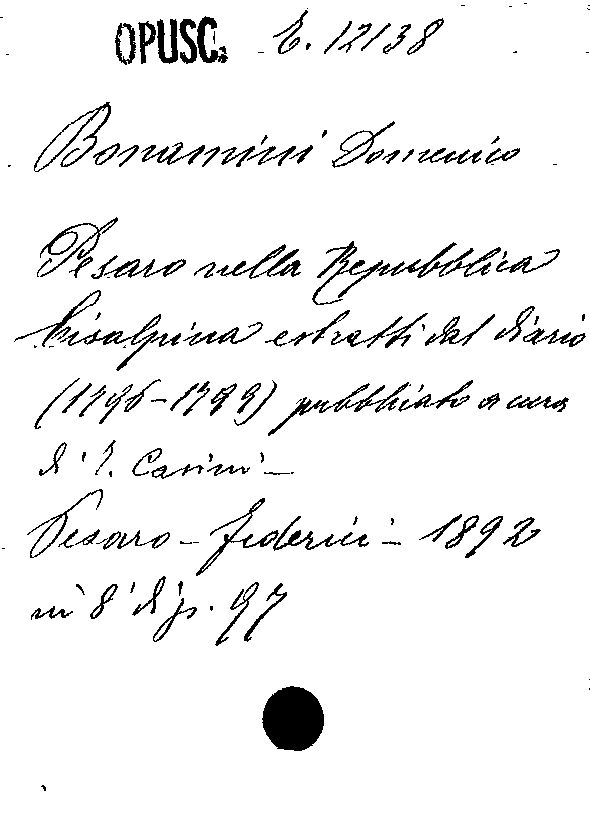 OPUSC. E. 12138
Bonamini Domenico
Pesaro nella Repubblica
Cisalpina estratti dal diario
(1796-1799) pubblicato a cura
di T. Casini -
Pesaro - Federici - 1892
in 8° di p. 97